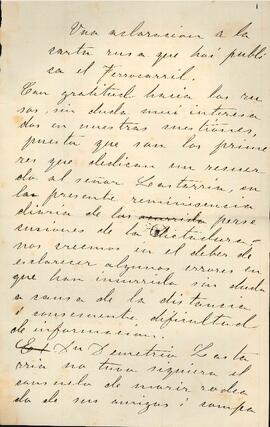 1
Una aclaracion a la
carta rusa que hoi publi
ca el Ferrocarril.
Con gratitud hacia los ru
sos, sin duda mui interesa
dos en nuestras cuestiones,
puesto que son los prime
res que dedican un recuer
do al señor Lastarria, en
la presente reminiscencia
diaria de las perse
cusiones de la Dictadura,
nos creemos en el deber de
esclarecer algunos errores en
que han incurrido sin duda
a causa de la distancia
i consecuente dificultad
de informacion.
Dn Demetrio Lasta
rria no tuvo siquiera el
consuelo de morir rodea
do de sus amigos i compa